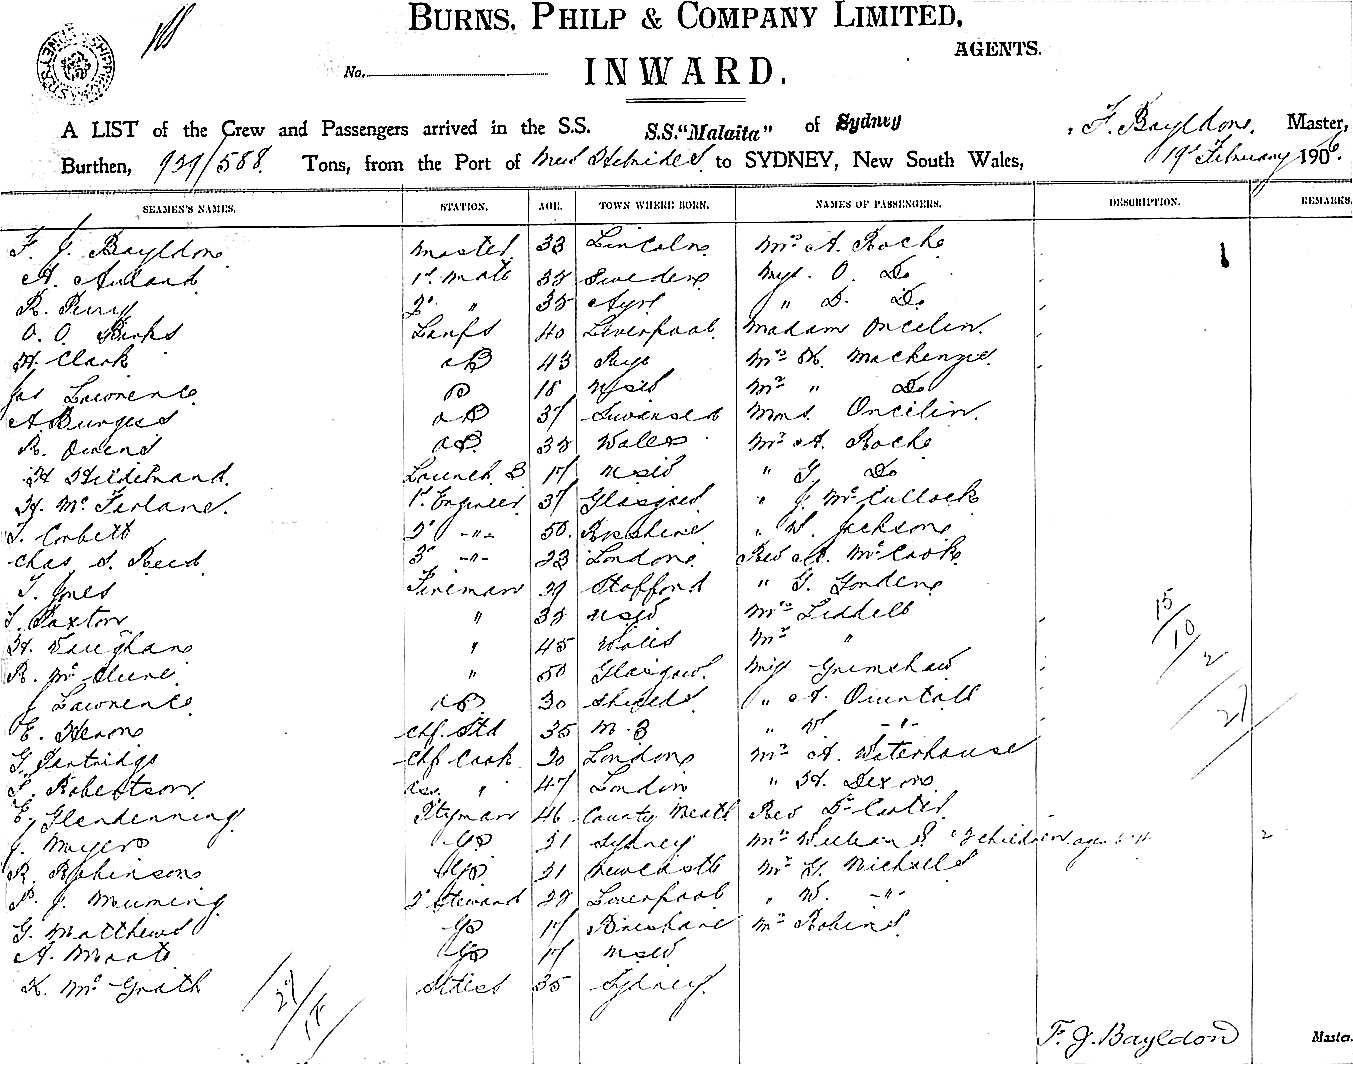 BURNS, PHILP & COMPANY LIMITED,
AGENTS.
No.
INWARD.
A LIST of the Crew and Passengers arrived in the S.S. S.S. "Malaita" of Sydney F. Bayldon, Master,
Burthen, 939/588 Tons, from the Port of New Hebrides to SYDNEY, New South Wales, 19th February 1906.
SEAMEN'S NAMES. STATION. AGE. TOWN WHERE BORN. NAMES OF PASSENGERS. DESCRIPTION. REMARKS.
F. J. Bayldon Master 33 Lincoln Mrs A. Roche
A. 1st Mate Sweden Miss O. Do
R. Perry 2d " Ayr " D. Do
O. O. Banks Lamps 40 Liverpool Madam Oncelin
H. Clark AB 43 Rye Mrs K. Mackenzie
Jas Lawrence 18 NSW Mr " Do
A Burgess AB 37 Swansea Mons. Oncelin
R. Owens AB Wales Mr A. Roche
H Hildebrand Launch B 17 NSW " G Do
H. Mc Farlane 1st Engineer 37 Glasgow " J. McCullock
T. Corbett 2d -"- 50 " W. Jackson
Chas S. Reed 3d -"- 23 London Rev McCook
T. Jones Fireman 29 Stafford " G.
T. Paxton " NSW Mrs Liddell
H. Vaughan " 45 Wales Mr "
R. Mc Clure " 50 Glasgow Miss Grimshaw
J Lawrence AB 30 Shields " A.
E. Heron Chf. Std 35 N. Z " W -"-
G. Partridge Chf Cook 30 London Mr A. Waterhouse
F. Robertson Ass. " 47 London " H. Dixon
E. Glendenning Ptryman 46 County Meath Rev Dr Carter
J. Myers Go 21 Sydney Mrs & 2 children age
R. Robinson Go 21 Newcastle Mr G. Nicholls
P. J. 2d Steward Liverpool " W. -"-
G. Matthews Go 17 Brisbane Mr Robins
A. Go 17 NSW
K. McGrath Stdess 35 Sydney
15/10/2
27
27/17
2
F. J. Bayldon Master.